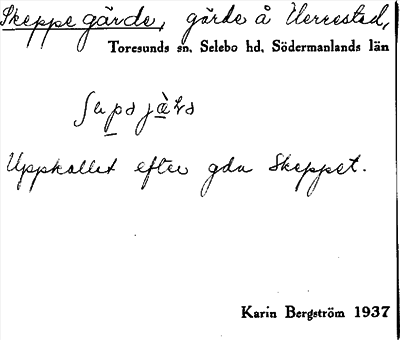 Skeppe gärde, gärde å Herrestad,
Toresunds sn, Selebo hd, Södermanlands län
Uppkallat efter gdn Skeppet.
Karin Bergström 1937